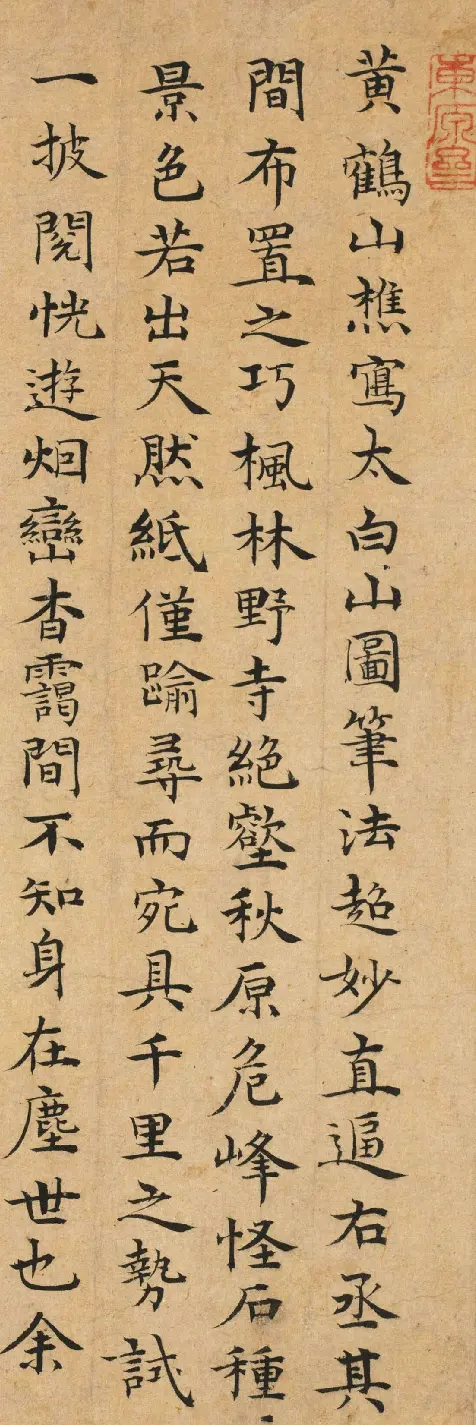 黄鶴山樵寫太白山圖筆法超妙直逼右丞其
間布置之巧楓林野寺絕壑秋原危峰怪石種
景色若出天然紙僅踰尋而宛具千里之勢試
一披閱恍遊烟巒杳靄間不知身在塵世也余